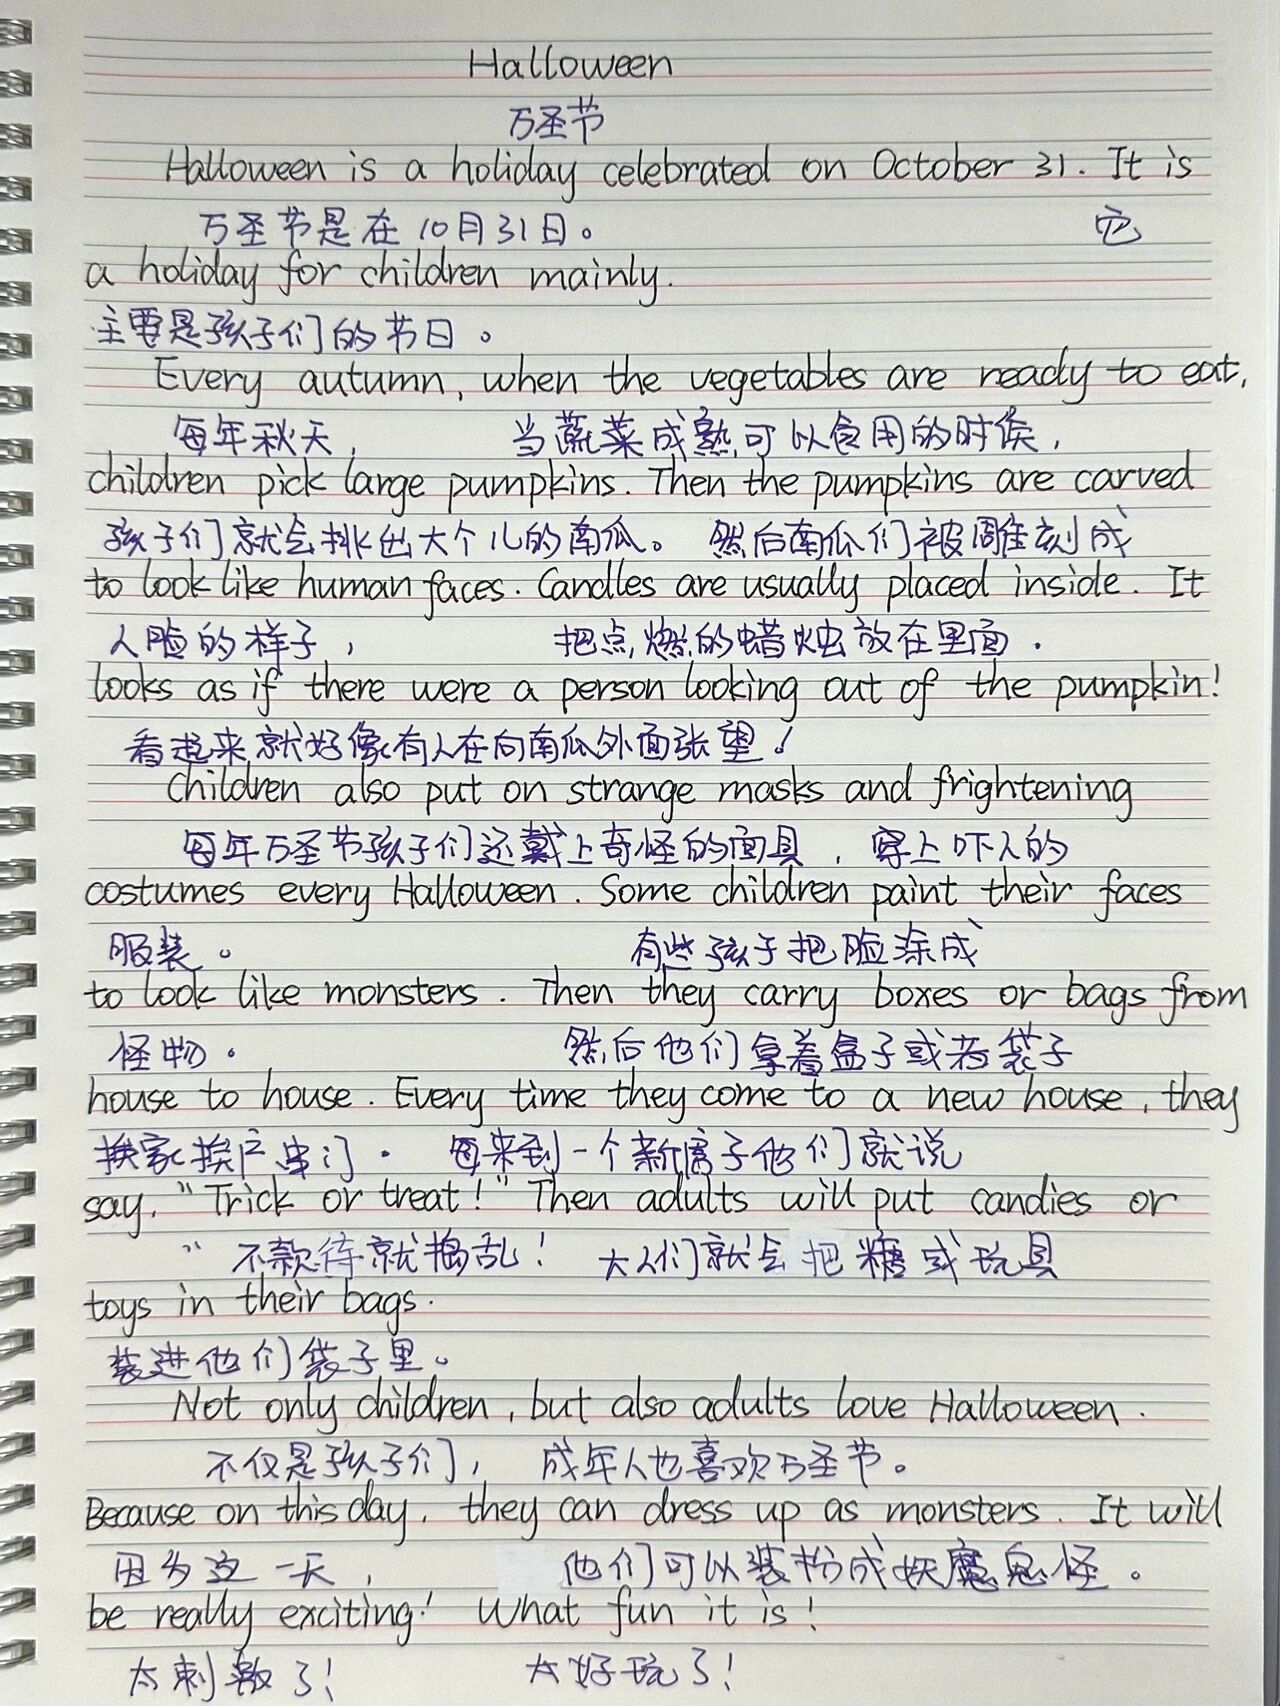 Halloween
万圣节
Halloween is a holiday celebrated on October 31. It is
万圣节是在10月31日。 它
a holiday for children mainly.
主要是孩子们的节日。
Every autumn, when the vegetables are ready to eat,
每年秋天， 当蔬菜成熟可以食用的时候，
children pick large pumpkins. Then the pumpkins are carved
孩子们就会挑出大个儿的南瓜。 然后南瓜们被雕刻成
to look like human faces. Candles are usually placed inside. It
人脸的样子， 把点燃的蜡烛放在里面.
looks as if there were a person looking out of the pumpkin!
看起来就好像有人在向南瓜外面张望！
Children also put on strange masks and frightening
每年万圣节孩子们还戴上奇怪的面具，穿上吓人的
costumes every Halloween. Some children paint their faces
服装。 有些孩子把脸涂成
to look like monsters. Then they carry boxes or bags from
怪物。 然后他们拿着盒子或者袋子
house to house. Every time they come to a new house, they
挨家挨户串门. 每来到一个新房子他们就说
say, "Trick or treat!" Then adults will put candies or
“不款待就捣乱！ 大人们就会把糖或玩具
toys in their bags.
装进他们袋子里。
Not only children, but also adults love Halloween.
不仅是孩子们， 成年人也喜欢万圣节。
Because on this day, they can dress up as monsters. It will
因为这一天， 他们可以装扮成妖魔鬼怪。
be really exciting! What fun it is!
太刺激了！ 太好玩了！